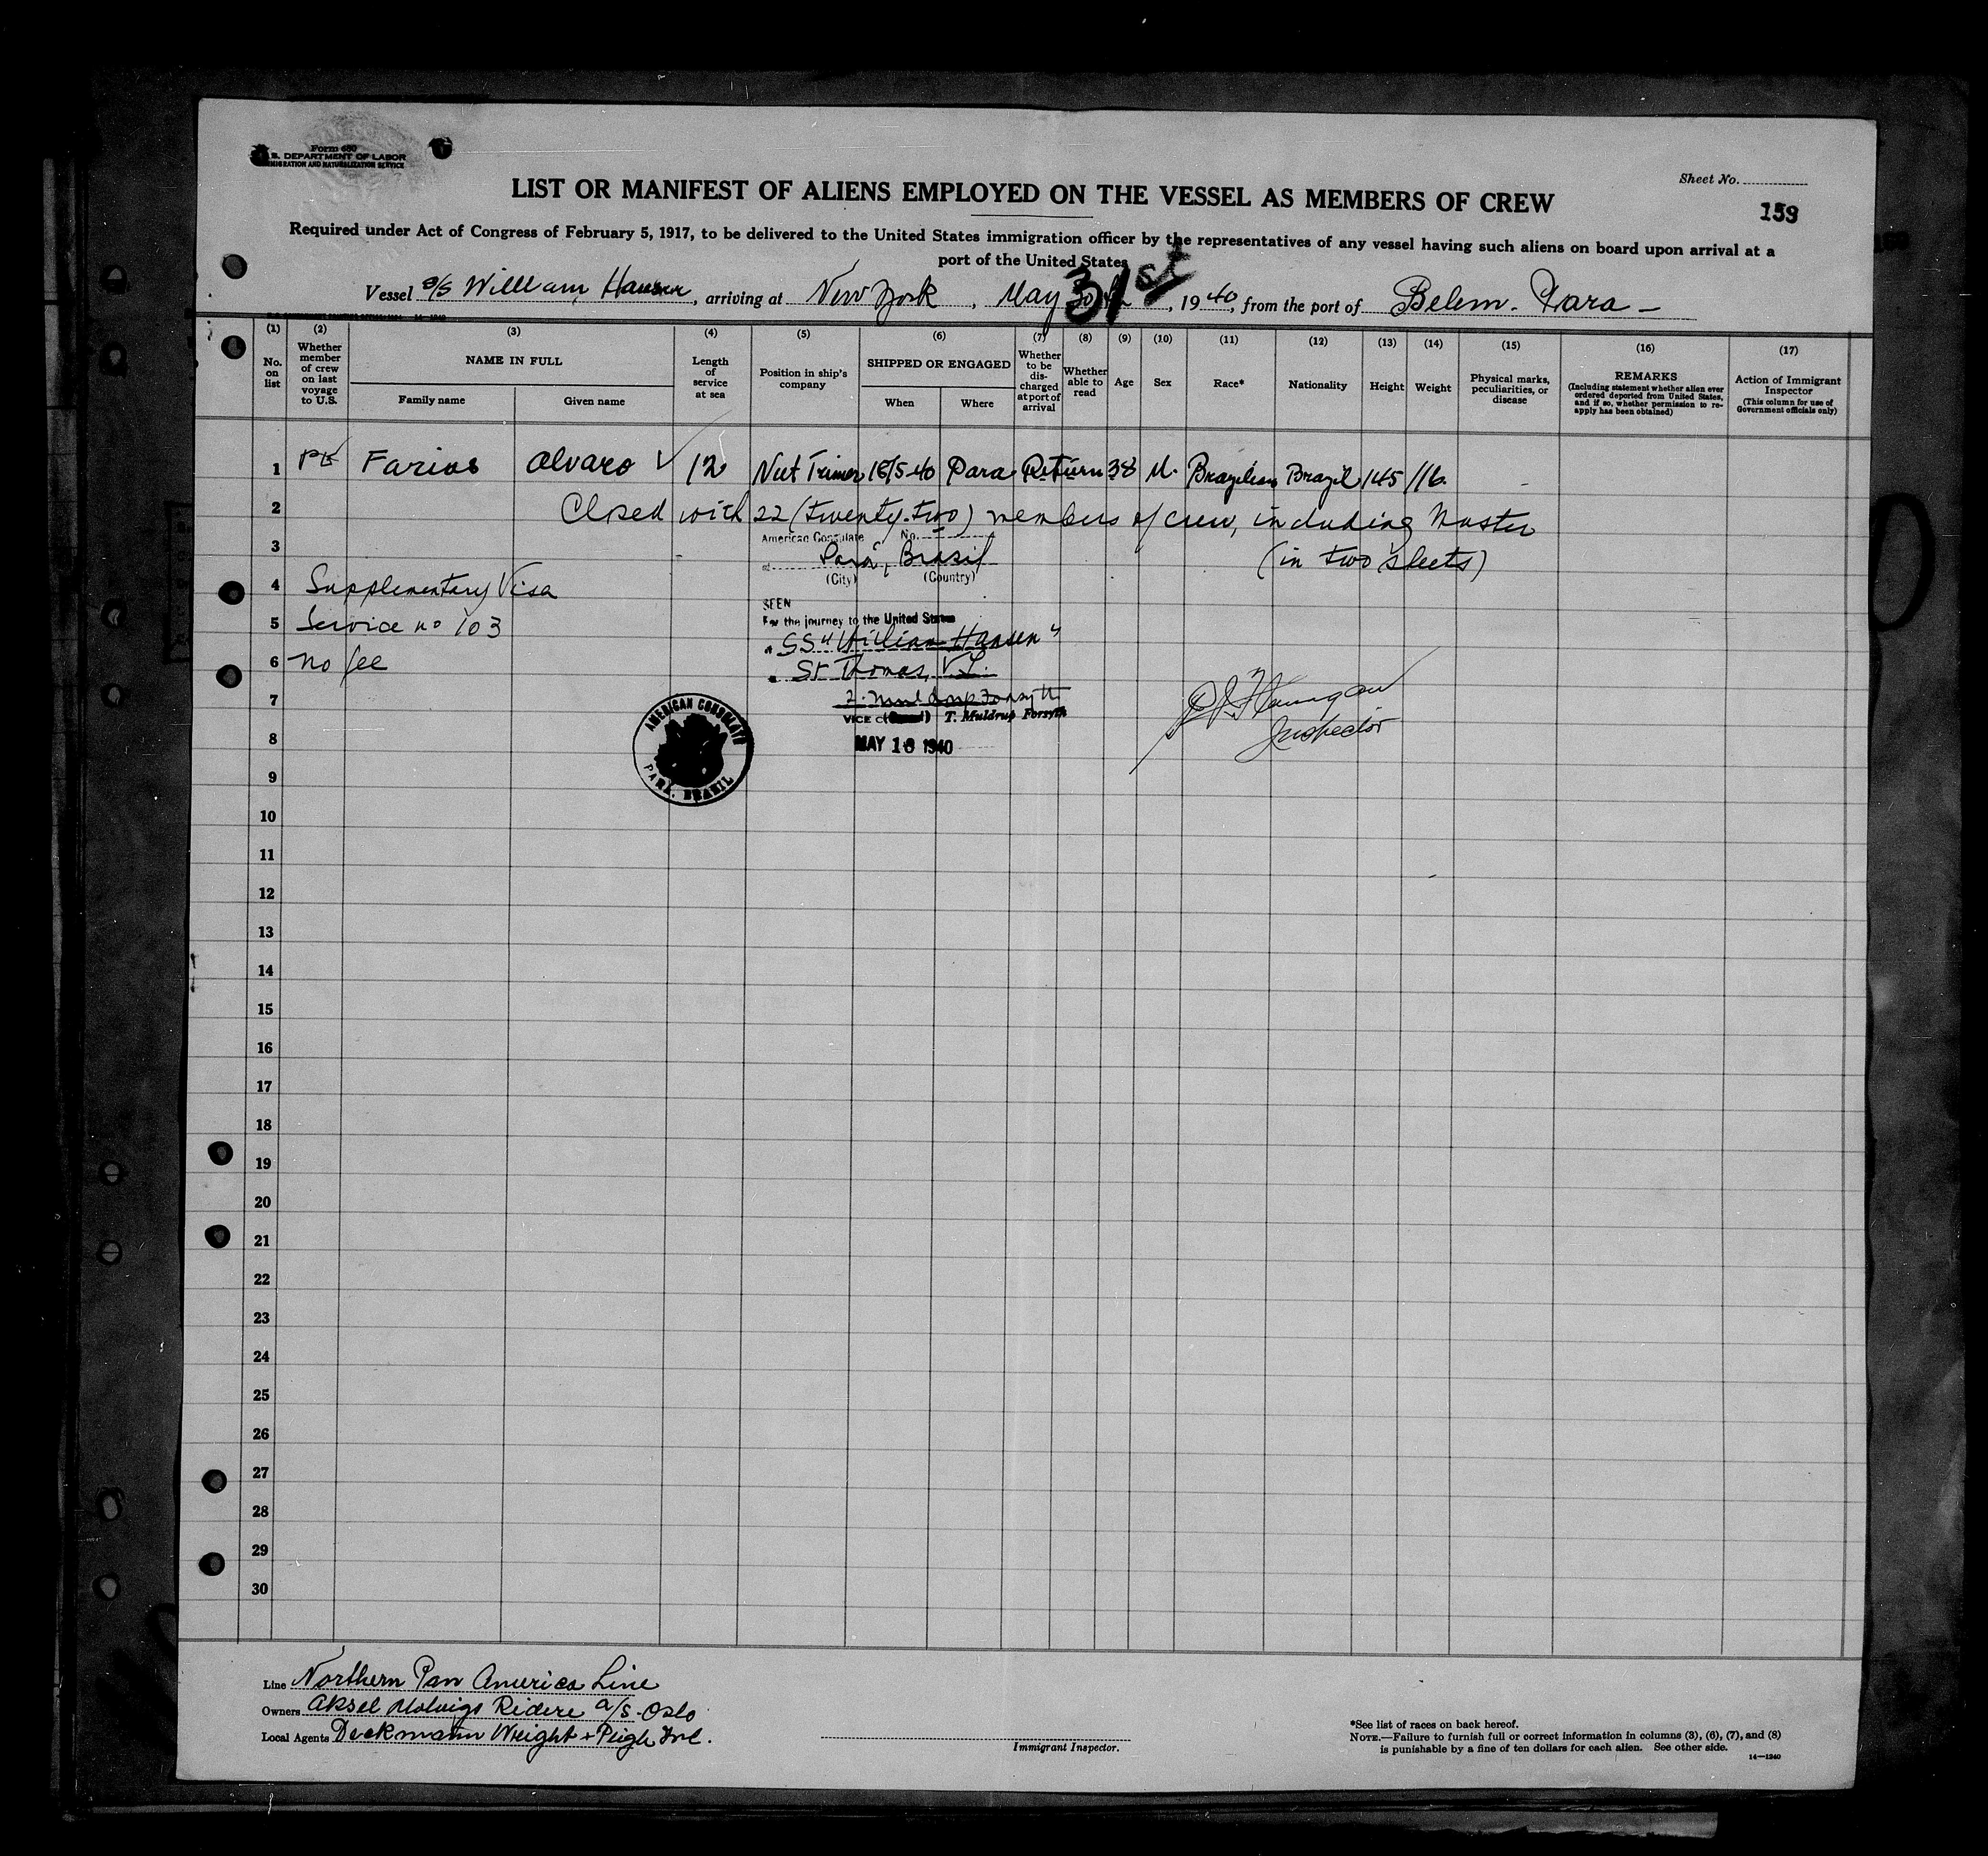 Form 680
U. S. DEPARTMENT OF LABOR
IMMIGRATION AND NATURALIZATION SERVICE
Sheet No.
LIST OR MANIFEST OF ALIENS EMPLOYED ON THE VESSEL AS MEMBERS OF CREW
159
Required under Act of Congress of February 5, 1917, to be delivered to the United States immigration officer by the representatives of any vessel having such aliens on board upon arrival at a
port of the United States
Vessel S/S William Hansen, arriving at New York, May 31st, 1940, from the port of Belem - Para -
(1) (2) (3) (4) (5) (6) (7) (8) (9) (10) (11) (12) (13) (14) (15) (16) (17)
No. on list
Whether member of crew on last voyage to U.S.
NAME IN FULL
Family name
Given name
Length of service at sea
Position in ship's company
SHIPPED OR ENGAGED
When
Where
Whether to be discharged at port of arrival
Whether able to read
Age
Sex
Race*
Nationality
Height
Weight
Physical marks, peculiarities, or disease
REMARKS
(Including statement whether alien ever ordered deported from United States, and if so, whether permission to reapply has been obtained)
Action of Immigrant Inspector
(This column for use of Government officials only)
1 Farias Alvaro 12 16/5-40 Para Return 38 M. Brazilian Brazil 145 116
2 Closed with 22 (twenty-two) members of crew, including Master
American Consulate No.
3 at Pará, Brasil (in two sheets)
(City) (Country)
4 Supplementary Visa
SEEN
5 Service no 103
For the journey to the United States
SS "William Hansen"
6 no fee
St Thomas, V.I.
7
VICE C T. Muldrup Forsyth
Inspector
8 MAY 16 1940
AMERICAN CONSULATE
PARA, BRASIL
9
10
11
12
13
14
15
16
17
18
19
20
21
22
23
24
25
26
27
28
29
30
Line Northern Pan America Line
Owners Aksel a/s - Oslo
Local Agents
Immigrant Inspector.
*See list of races on back hereof.
NOTE.—Failure to furnish full or correct information in columns (3), (6), (7), and (8)
is punishable by a fine of ten dollars for each alien. See other side.
14—1240